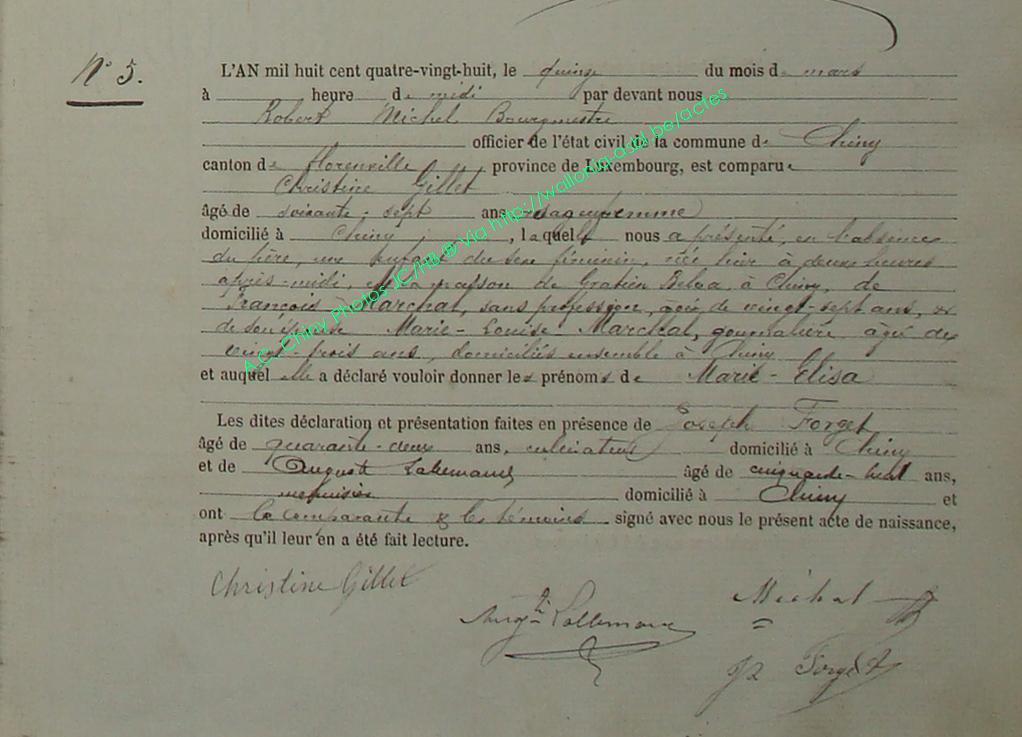 N° 5.
L'AN mil huit cent quatre-vingt-huit, le quinze du mois de mars
à heure de midi par devant nous
Robert Michel Bourgmestre
officier de l'état civil de la commune de Chiny
canton de florenville province de Luxembourg, est comparue
Christine Gillet
âgé de soixante-sept ans sage femme
domicilié à Chiny, laquelle nous a présenté, en l'absence
du père, une enfant du sexe féminin, née hier à deux heures
après-midi, en la maison de Gratien à Chiny, de
François Marchal, sans profession, âgé de vingt-sept ans, et
de son épouse Marie-Louise Marchal, âgée de
vingt-trois ans, domiciliés ensemble à Chiny
et auquel elle a déclaré vouloir donner les prénoms de Marie-Elisa
Les dites déclaration et présentation faites en présence de Joseph Forget
âgé de quarante-deux ans, cultivateur domicilié à Chiny
et de Auguste Lallemand âgé de cinquante-huit ans,
menuisier domicilié à Chiny et
ont la comparante & les témoins signé avec nous le présent acte de naissance,
après qu'il leur en a été fait lecture.
Christine Gillet
Augte Lallemand
Michel
Forget
A.C. Chiny Photos JC/HB ® Via http://wallonia-asbl.be/actes